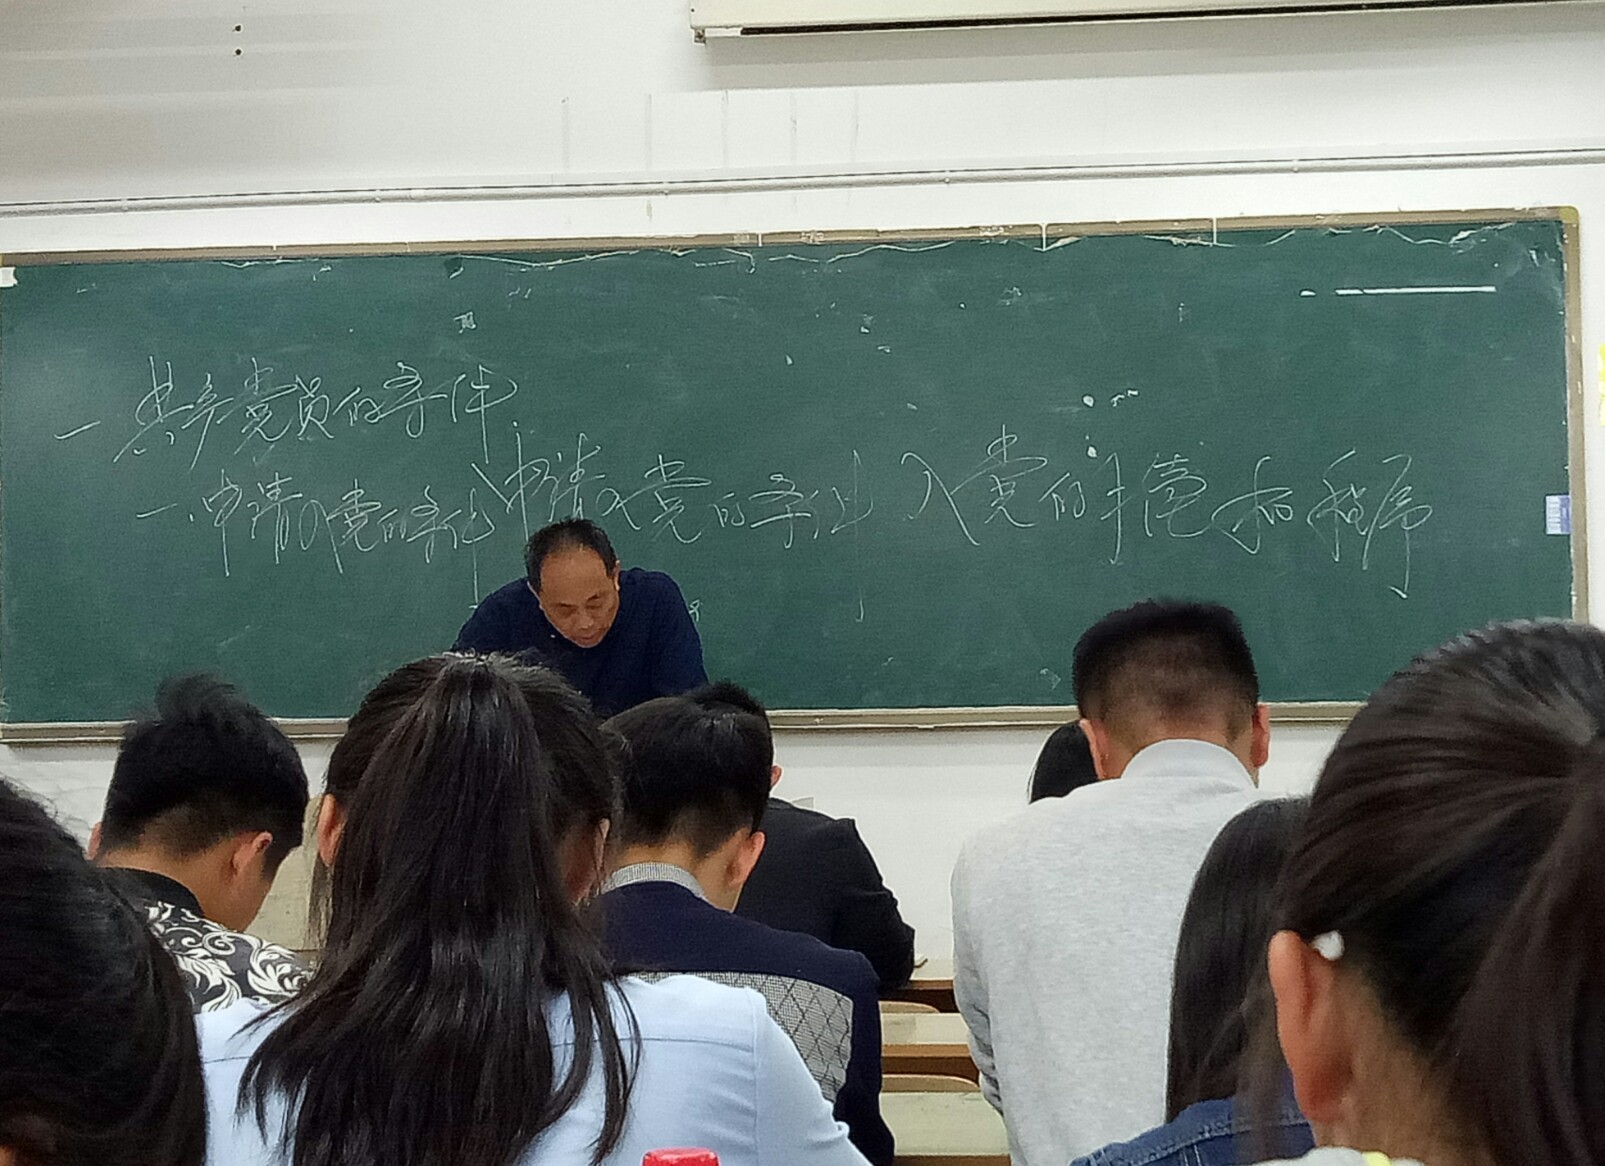 一 共产党员的条件
一.申请入党的条件 申请入党的条件 入党的手续和程序